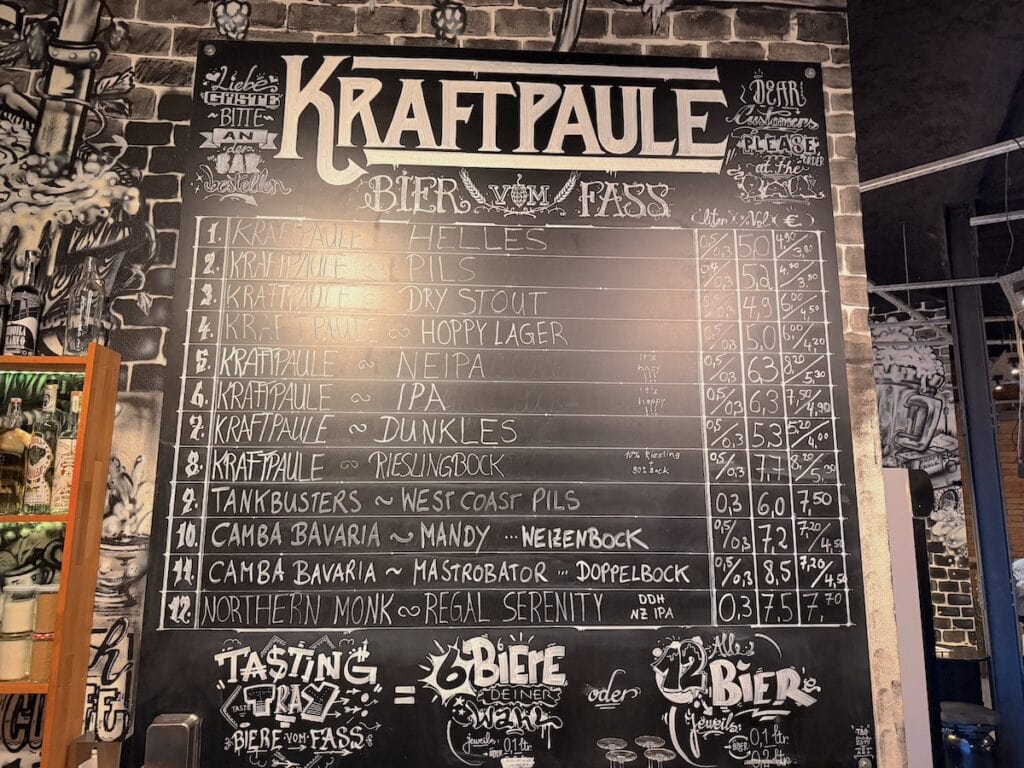 KRAFTPAULE
Liebe
GÄSTE
BITTE
AN
der
BAR
bestellen
DEAR
Customers
PLEASE
ORDER
at the
BIER VOM FASS
(liter) %Vol €
1. KRAFTPAULE ~ HELLES 0,5/0,3 5,0 4,90/3,80
2. KRAFTPAULE ~ PILS 0,4/0,3 5,2 4,90/3,80
3. KRAFTPAULE ~ DRY STOUT 0,5/0,3 4,9 6,00/4,50
4. KRAFTPAULE ~ HOPPY LAGER 0,5/0,3 5,0 6,00/4,20
5. KRAFTPAULE ~ NEIPA it's hazy !!! 0,5/0,3 6,3 8,20/5,30
6. KRAFTPAULE ~ IPA it's hoppy !!! 0,5/0,3 6,3 7,50/4,90
7. KRAFTPAULE ~ DUNKLES 0,5/0,3 5,3 5,20/4,00
8. KRAFTPAULE ~ RIESLINGBOCK 10% Riesling + 90% Bock 0,5/0,3 7,7 8,20/5,30
9. TANKBUSTERS ~ WEST COAST PILS 0,3 6,0 7,50
10. CAMBA BAVARIA ~ MANDY ... WEIZENBOCK 0,5/0,3 7,2 7,20/4,50
11. CAMBA BAVARIA ~ MASTROBATOR ... DOPPELBOCK 0,5/0,3 8,5 7,20/4,50
12. NORTHERN MONK ~ REGAL SERENITY DDH NZ IPA 0,3 7,5 7,70
TASTING
TASTE
TRAY
BIERE VOM FASS
=
6 BIERE
DEINER
WAHL
jeweils 0,1 ltr.
oder
12 Alle
BIER
jeweils
0,1 ltr.